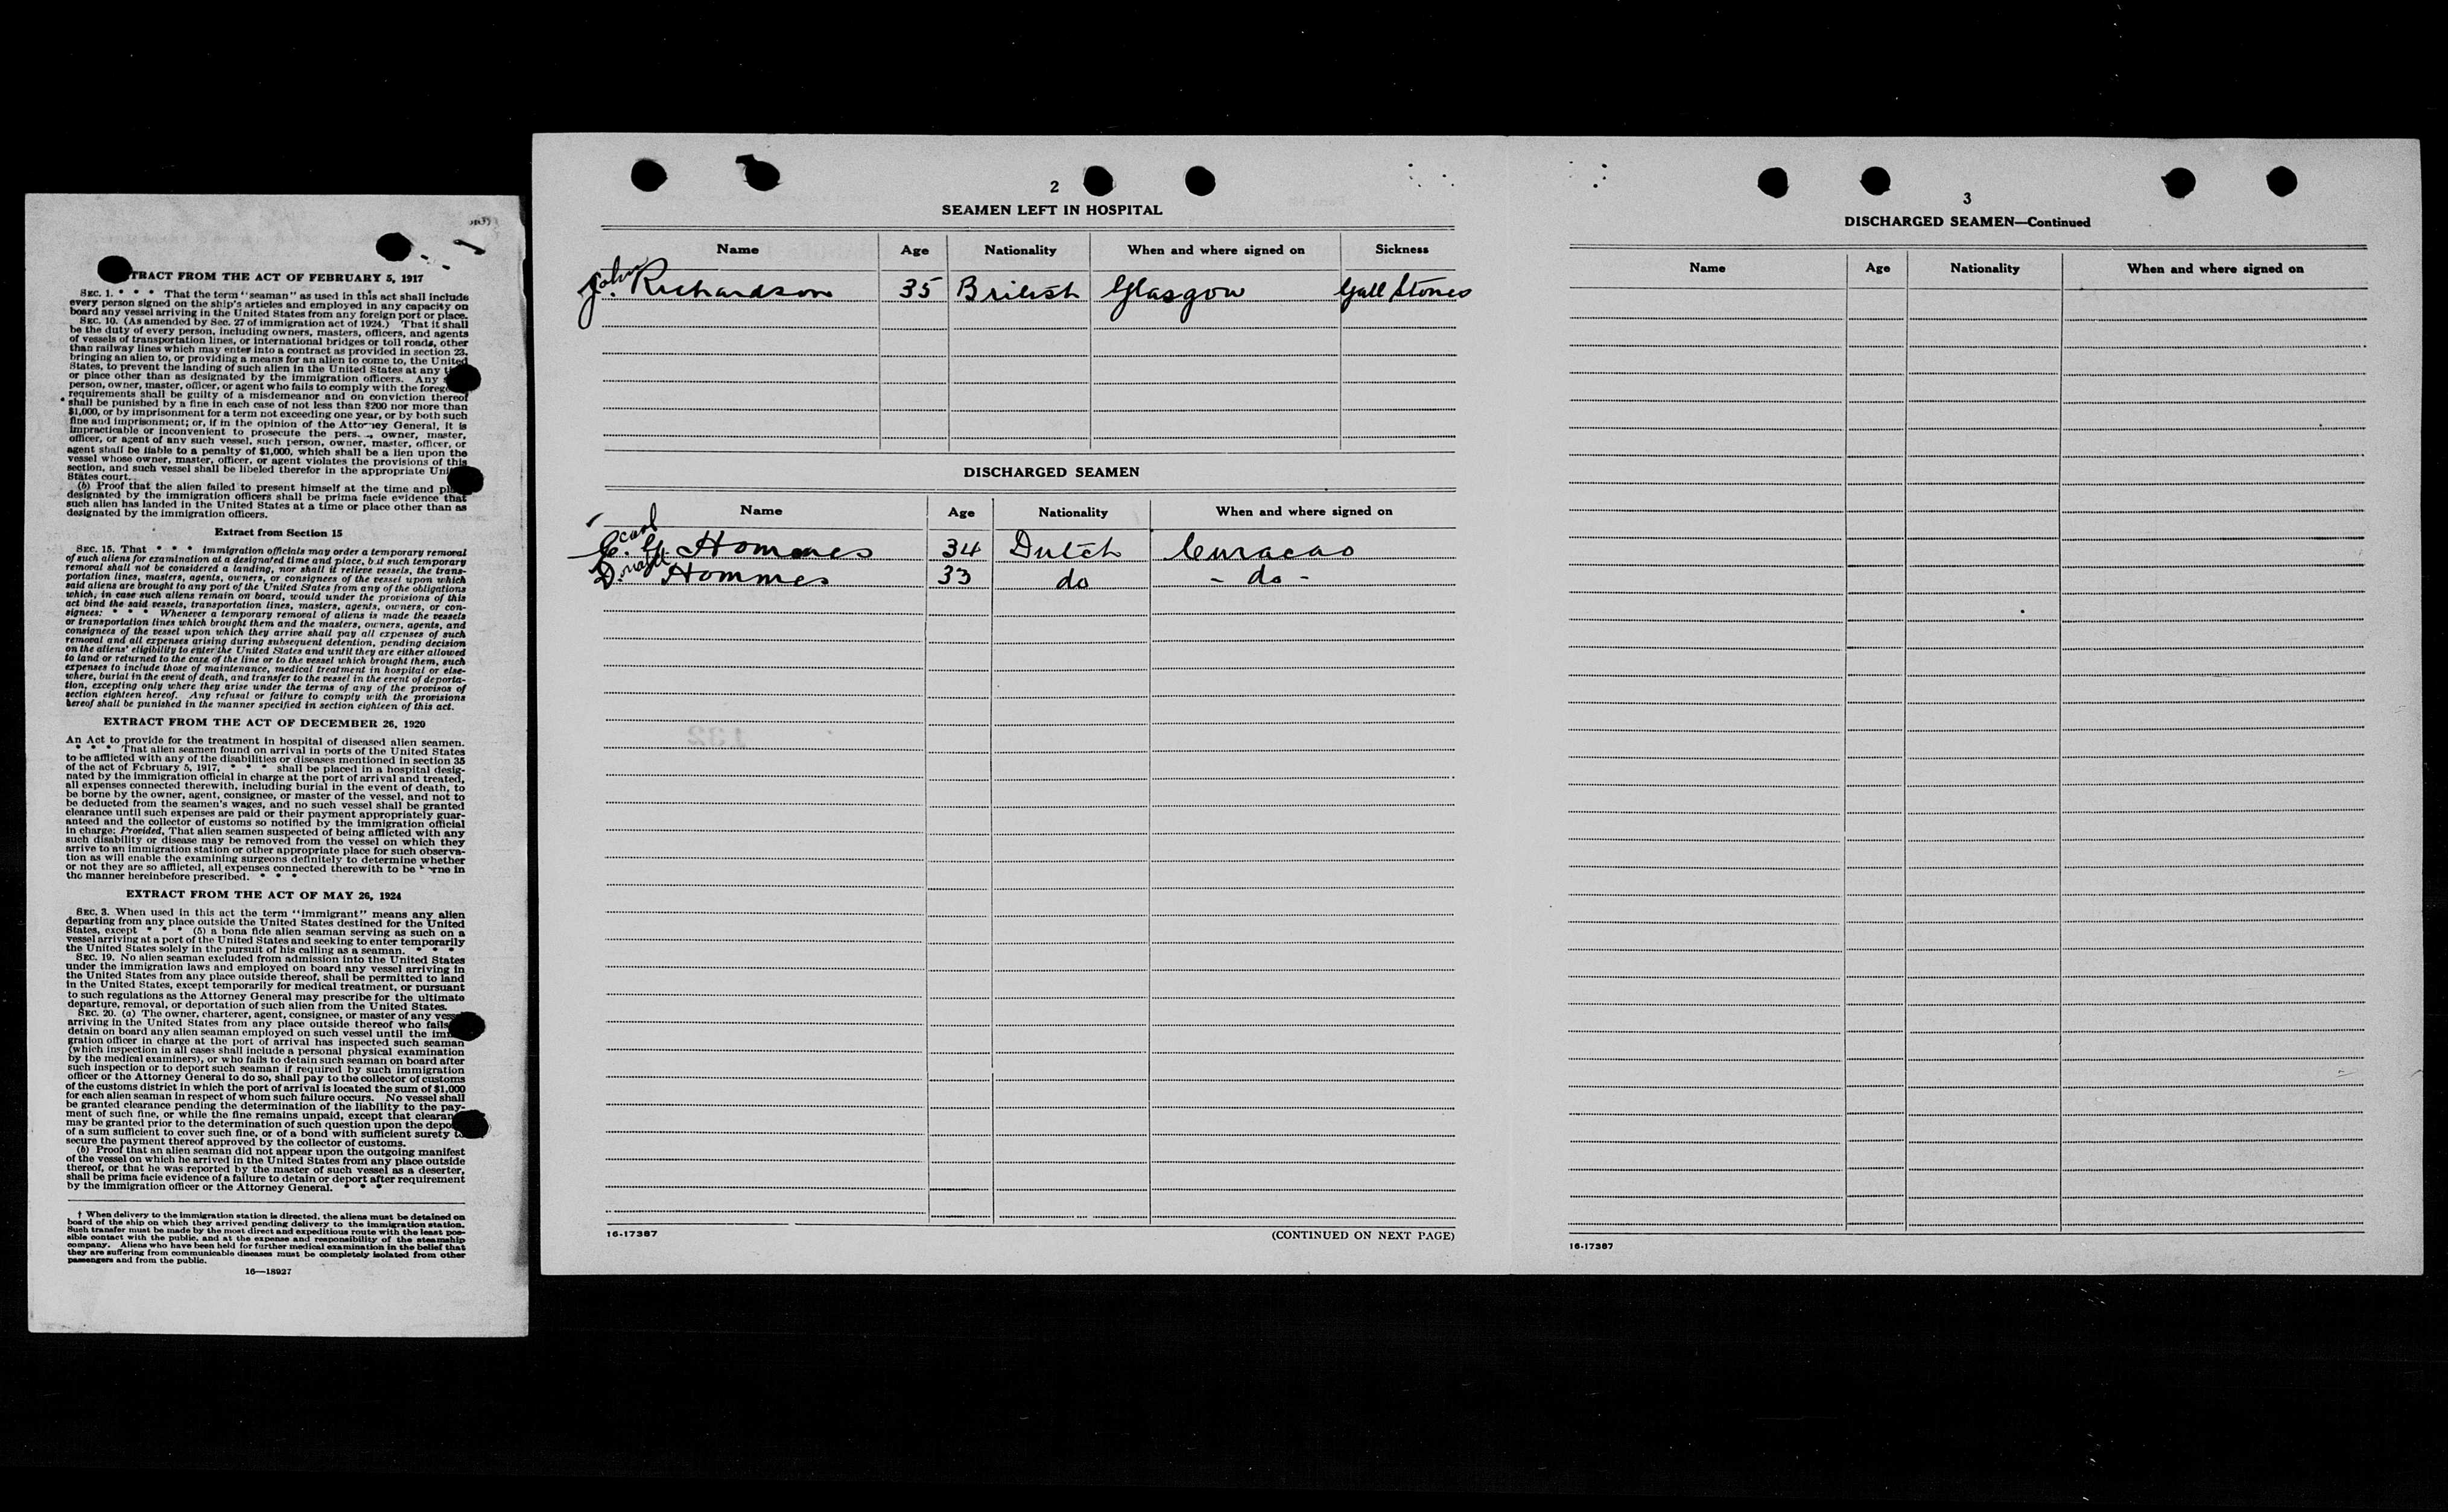 TRACT FROM THE ACT OF FEBRUARY 5, 1917
SEC. 1. * * * That the term "seaman" as used in this act shall include
every person signed on the ship's articles and employed in any capacity on
board any vessel arriving in the United States from any foreign port or place.
SEC. 10. (As amended by Sec. 27 of immigration act of 1924.) That it shall
be the duty of every person, including owners, masters, officers, and agents
of vessels of transportation lines, or international bridges or toll roads, other
than railway lines which may enter into a contract as provided in section 23,
bringing an alien to, or providing a means for an alien to come to, the United
States, to prevent the landing of such alien in the United States at any
or place other than as designated by the immigration officers. Any
person, owner, master, officer, or agent who fails to comply with the foreg
requirements shall be guilty of a misdemeanor and on conviction thereof
shall be punished by a fine in each case of not less than $200 nor more than
$1,000, or by imprisonment for a term not exceeding one year, or by both such
fine and imprisonment; or, if in the opinion of the Attorney General, it is
impracticable or inconvenient to prosecute the pers , owner, master,
officer, or agent of any such vessel, such person, owner, master, officer, or
agent shall be liable to a penalty of $1,000, which shall be a lien upon the
vessel whose owner, master, officer, or agent violates the provisions of this
section, and such vessel shall be libeled therefor in the appropriate Uni
States court.
(b) Proof that the alien failed to present himself at the time and pl
designated by the immigration officers shall be prima facie evidence that
such alien has landed in the United States at a time or place other than as
designated by the immigration officers.
Extract from Section 15
SEC. 15. That * * * immigration officials may order a temporary removal
of such aliens for examination at a designated time and place, but such temporary
removal shall not be considered a landing, nor shall it relieve vessels, the trans-
portation lines, masters, agents, owners, or consignees of the vessel upon which
said aliens are brought to any port of the United States from any of the obligations
which, in case such aliens remain on board, would under the provisions of this
act bind the said vessels, transportation lines, masters, agents, owners, or con-
signees: * * * Whenever a temporary removal of aliens is made the vessels
or transportation lines which brought them and the masters, owners, agents, and
consignees of the vessel upon which they arrive shall pay all expenses of such
removal and all expenses arising during subsequent detention, pending decision
on the aliens' eligibility to enter the United States and until they are either allowed
to land or returned to the care of the line or to the vessel which brought them, such
expenses to include those of maintenance, medical treatment in hospital or else-
where, burial in the event of death, and transfer to the vessel in the event of deporta-
tion, excepting only where they arise under the terms of any of the provisos of
section eighteen hereof. Any refusal or failure to comply with the provisions
hereof shall be punished in the manner specified in section eighteen of this act.
EXTRACT FROM THE ACT OF DECEMBER 26, 1920
An Act to provide for the treatment in hospital of diseased alien seamen.
* * * That alien seamen found on arrival in ports of the United States
to be afflicted with any of the disabilities or diseases mentioned in section 35
of the act of February 5, 1917, * * * shall be placed in a hospital desig-
nated by the immigration official in charge at the port of arrival and treated,
all expenses connected therewith, including burial in the event of death, to
be borne by the owner, agent, consignee, or master of the vessel, and not to
be deducted from the seamen's wages, and no such vessel shall be granted
clearance until such expenses are paid or their payment appropriately guar-
anteed and the collector of customs so notified by the immigration official
in charge: Provided, That alien seamen suspected of being afflicted with any
such disability or disease may be removed from the vessel on which they
arrive to an immigration station or other appropriate place for such observa-
tion as will enable the examining surgeons definitely to determine whether
or not they are so afflicted, all expenses connected therewith to be borne in
the manner hereinbefore prescribed. * * *
EXTRACT FROM THE ACT OF MAY 26, 1924
SEC. 3. When used in this act the term "immigrant" means any alien
departing from any place outside the United States destined for the United
States, except * * * (5) a bona fide alien seaman serving as such on a
vessel arriving at a port of the United States and seeking to enter temporarily
the United States solely in the pursuit of his calling as a seaman. * * *
SEC. 19. No alien seaman excluded from admission into the United States
under the immigration laws and employed on board any vessel arriving in
the United States from any place outside thereof, shall be permitted to land
in the United States, except temporarily for medical treatment, or pursuant
to such regulations as the Attorney General may prescribe for the ultimate
departure, removal, or deportation of such alien from the United States.
SEC. 20. (a) The owner, charterer, agent, consignee, or master of any vess
arriving in the United States from any place outside thereof who fails
detain on board any alien seaman employed on such vessel until the imm
gration officer in charge at the port of arrival has inspected such seaman
(which inspection in all cases shall include a personal physical examination
by the medical examiners), or who fails to detain such seaman on board after
such inspection or to deport such seaman if required by such immigration
officer or the Attorney General to do so, shall pay to the collector of customs
of the customs district in which the port of arrival is located the sum of $1,000
for each alien seaman in respect of whom such failure occurs. No vessel shall
be granted clearance pending the determination of the liability to the pay-
ment of such fine, or while the fine remains unpaid, except that clearan
may be granted prior to the determination of such question upon the depo
of a sum sufficient to cover such fine, or of a bond with sufficient surety t
secure the payment thereof approved by the collector of customs.
(b) Proof that an alien seaman did not appear upon the outgoing manifest
of the vessel on which he arrived in the United States from any place outside
thereof, or that he was reported by the master of such vessel as a deserter,
shall be prima facie evidence of a failure to detain or deport after requirement
by the immigration officer or the Attorney General. * * *
† When delivery to the immigration station is directed, the aliens must be detained on
board of the ship on which they arrived pending delivery to the immigration station.
Such transfer must be made by the most direct and expeditious route with the least pos-
sible contact with the public, and at the expense and responsibility of the steamship
company. Aliens who have been held for further medical examination in the belief that
they are suffering from communicable diseases must be completely isolated from other
passengers and from the public.
16—18927
2
SEAMEN LEFT IN HOSPITAL
Name Age Nationality When and where signed on Sickness
John Richardson 35 British Glasgow Gall Stones
DISCHARGED SEAMEN
Name Age Nationality When and where signed on
Carl
C. G. Hommes 34 Dutch Curacao
D. Hommes 33 do - do -
132
16-17387 (CONTINUED ON NEXT PAGE)
3
DISCHARGED SEAMEN—Continued
Name Age Nationality When and where signed on
16-17387